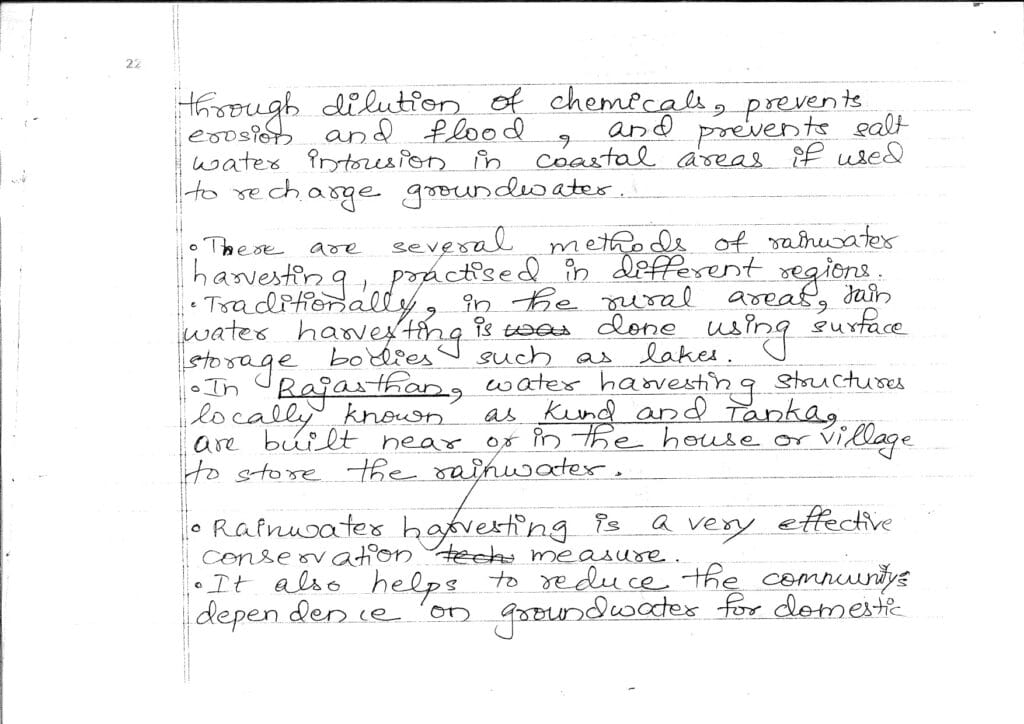 22
through dilution of chemicals, prevents
erosion and flood , and prevents salt
water intrusion in coastal areas if used
to recharge groundwater.
• There are several methods of rainwater
harvesting, practised in different regions.
• Traditionally, in the rural areas, rain
water harvesting is was done using surface
storage bodies such as lakes.
• In Rajasthan, water harvesting structures
locally known as Kund and Tanka,
are built near or in the house or village
to store the rainwater.
• Rainwater harvesting is a very effective
conservation tech measure.
• It also helps to reduce the community's
dependence on groundwater for domestic